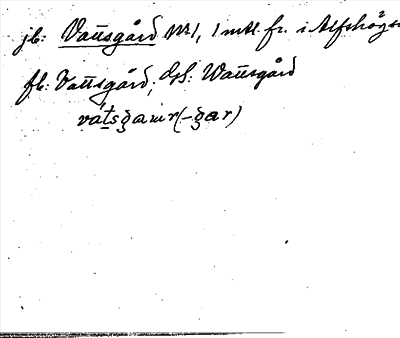 jb: Vannsgård Nr 1, 1 mtl. fr. i Alfshög
fb: Vannsgård; Gsk: Wannsgård
vátsgawr (-gar)